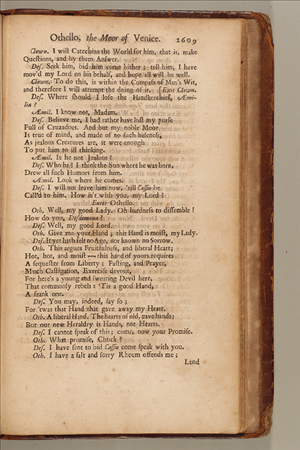 Othello, the Moor of Venice. 2609
Clown. I will Catechize the World for him, that is, make
Questions, and by them Answer.
Des. Seek him, bid him come hither; tell him, I have
mov'd my Lord on his behalf, and hope all will be well.
Clown. To do this, is within the Compass of Man's Wit,
and therefore I will attempt the doing of it. [Exit Clown.
Des. Where should I lose the Handkerchief, Æmi-
lia?
Æmil. I know not, Madam.
Des. Believe me, I had rather have lost my purse
Full of Cruzadoes. And but my noble Moor
Is true of mind, and made of no such baseness,
As jealous Creatures are, it were enough
To put him to ill thinking.
Æmil. Is he not Jealous?
Des. Who he? I think the Sun where he was born,
Drew all such Humors from him.
Æmil. Look where he comes.
Des. I will not leave him now, 'till Cassio be
Call'd to him. How is't with you, my Lord?
Enter Othello.
Oth. Well, my good Lady. Oh hardness to dissemble!
How do you, Desdemona?
Des. Well, my good Lord.
Oth. Give me your Hand; this Hand is moist, my Lady.
Des. It yet hath felt no Age, nor known no Sorrow.
Oth. This argues Fruitfulness, and liberal Heart;
Hot, hot, and moist — this hand of yours requires
A sequester from Liberty; Fasting, and Prayer,
Much Castigation, Exercise devout,
For here's a young and sweating Devil here,
That commonly rebels: 'Tis a good Hand,
A frank one.
Des. You may, indeed, say so;
For 'twas that Hand that gave away my Heart.
Oth. A liberal Hand. The hearts of old, gave hands;
But our new Heraldry is Hands, not Hearts.
Des. I cannot speak of this; come, now your Promise.
Oth. What promise, Chuck?
Des. I have sent to bid Cassio come speak with you.
Oth. I have a salt and sorry Rheum offends me;
Lend